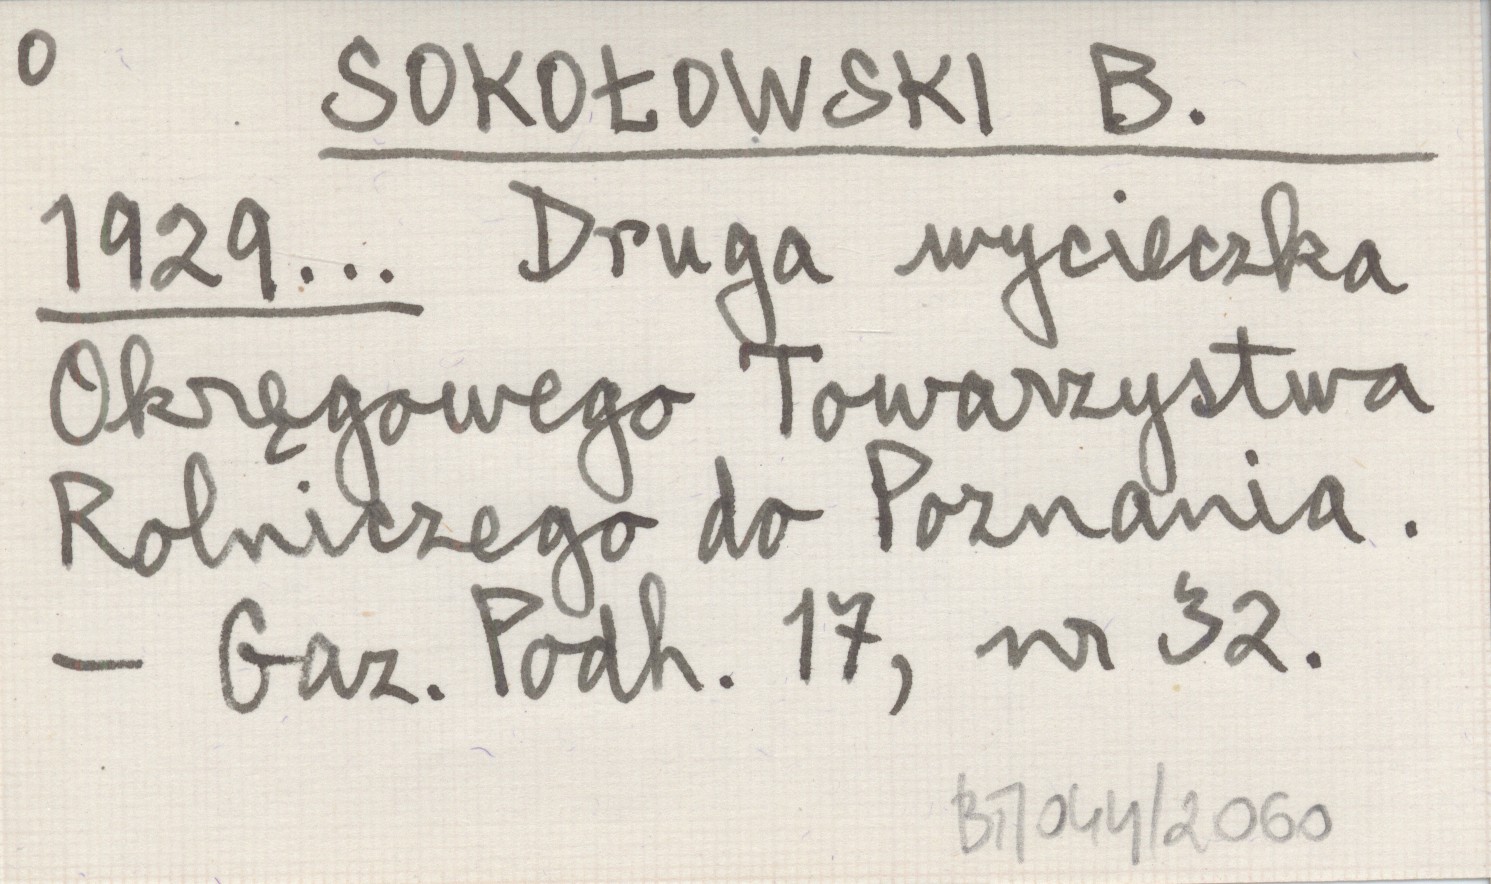 0 SOKOŁOWSKI B.
1929... Druga wycieczka
Okręgowego Towarzystwa
Rolniczego do Poznania.
— Gaz. Podh. 17, nr 32.
BT/044/2060